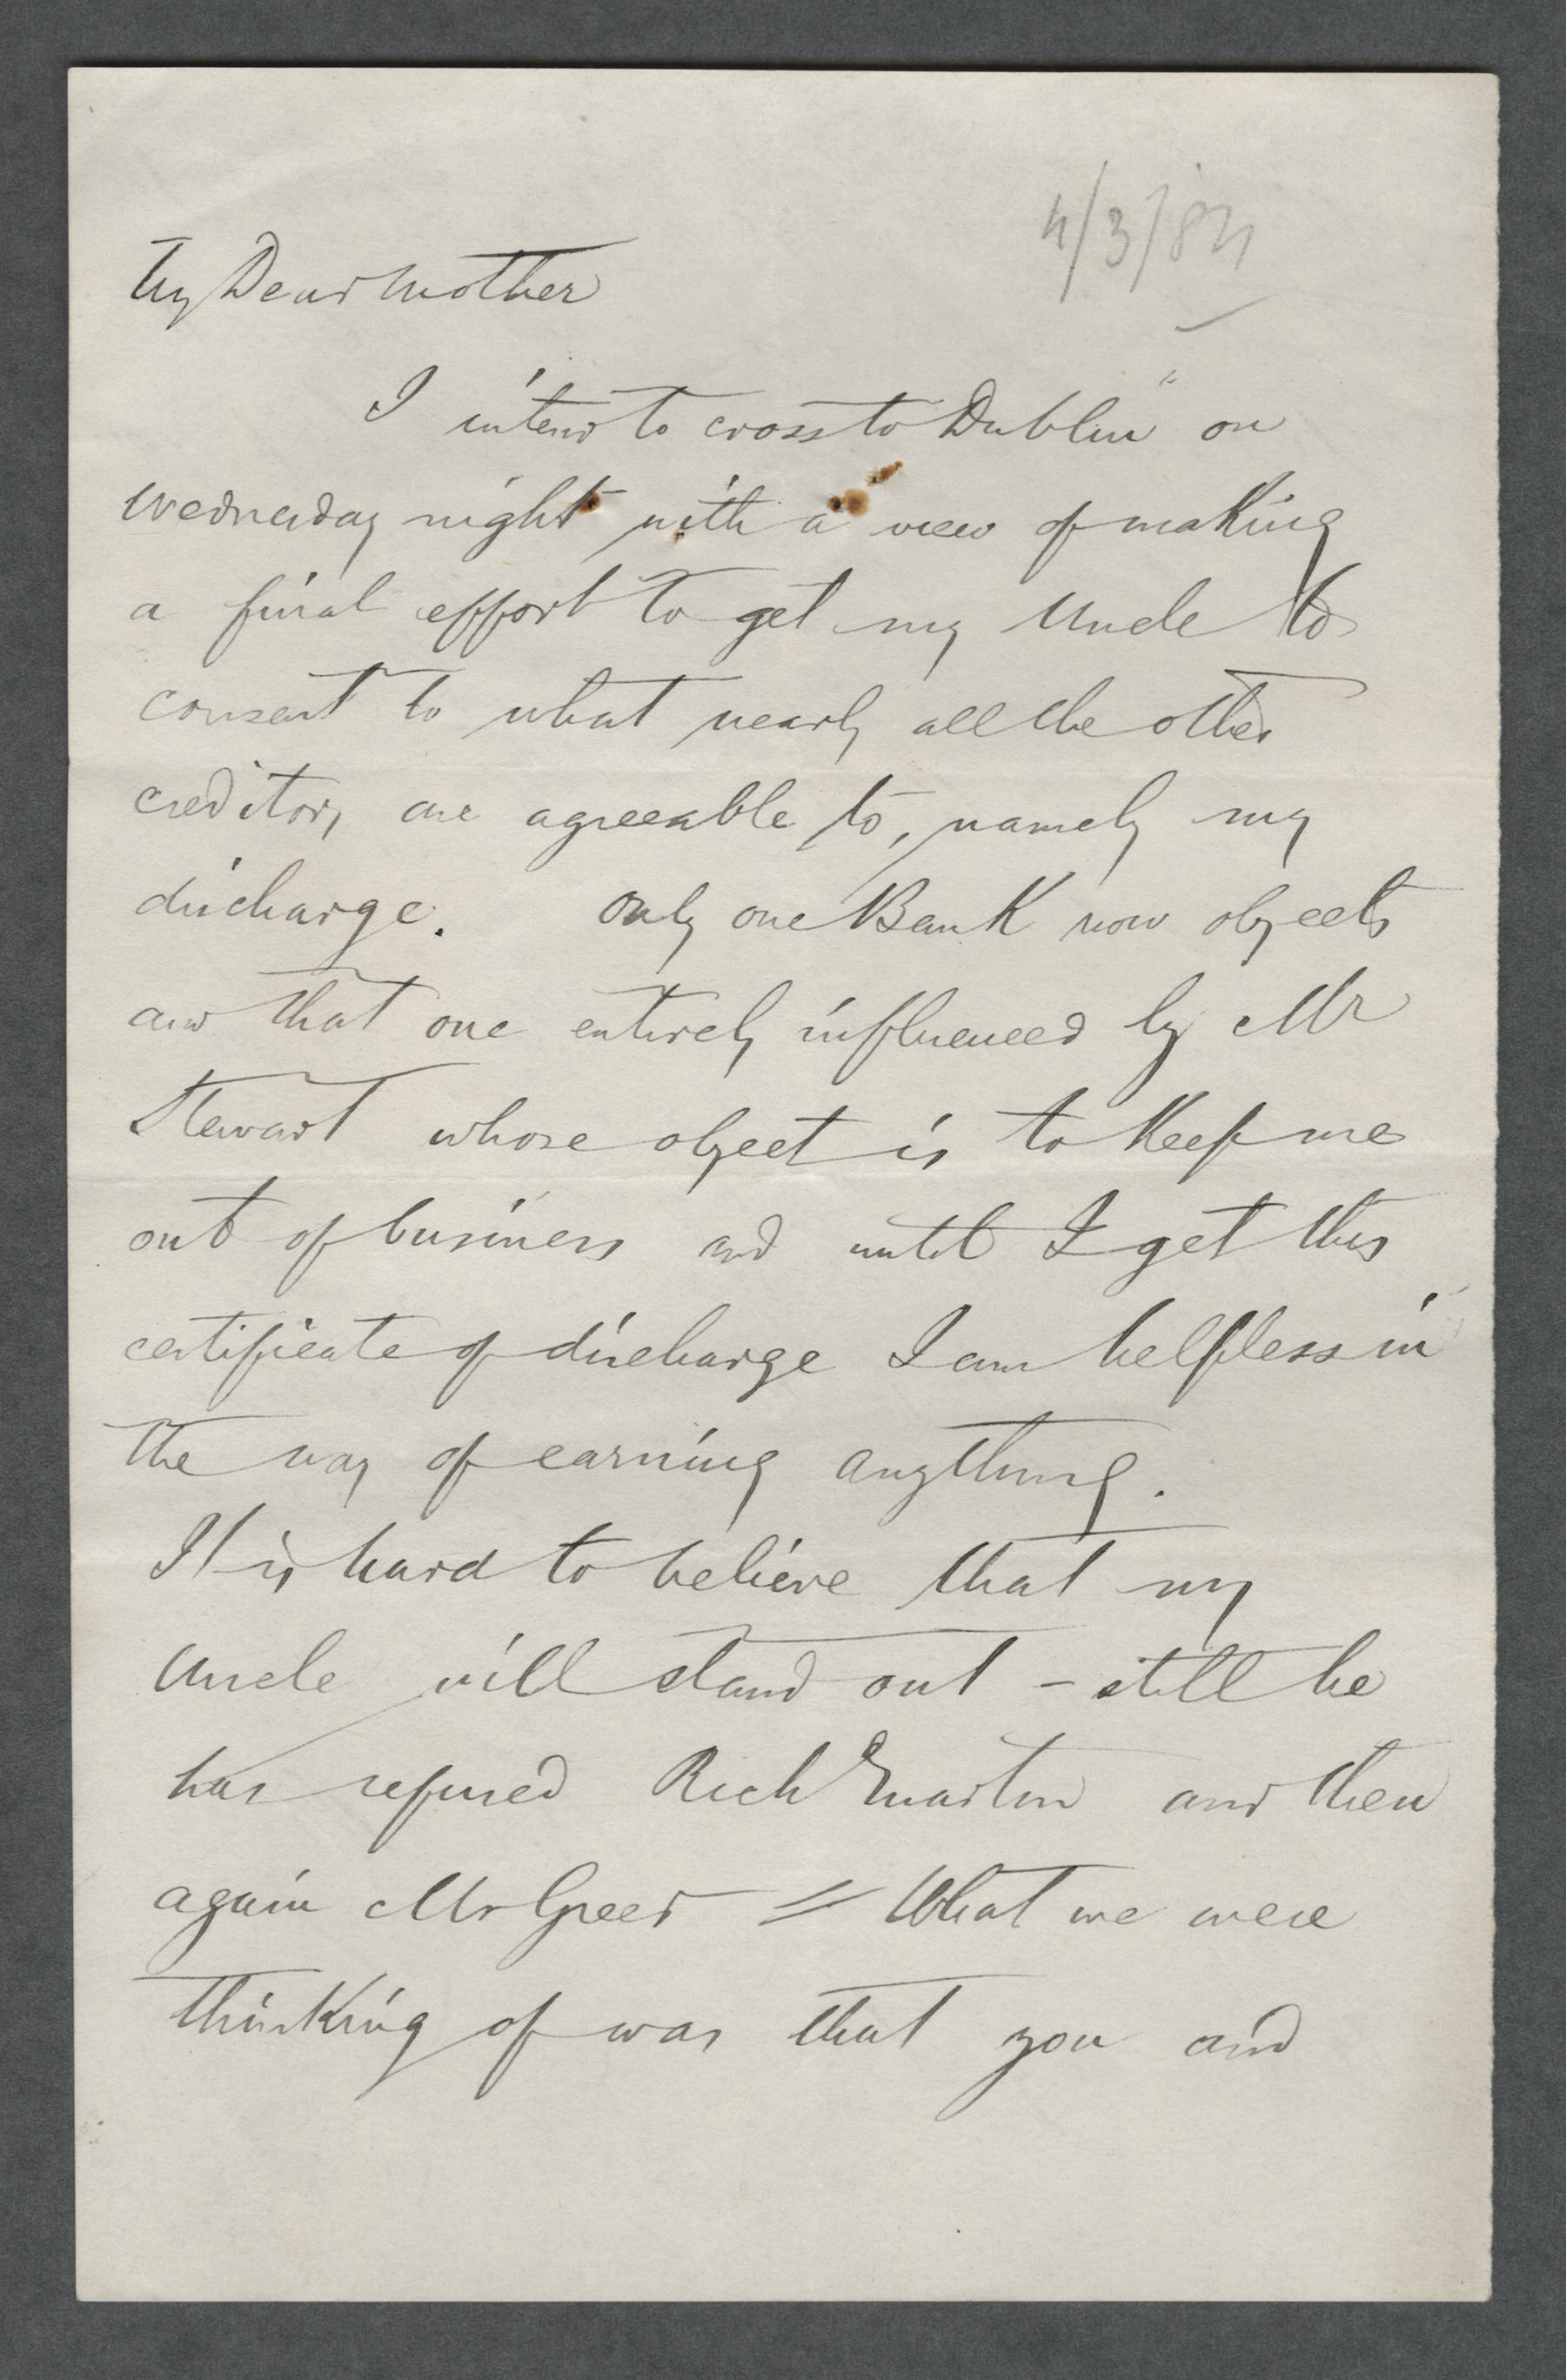 4/3/84
My Dear Mother
I intend to cross to Dublin on
Wednesday night with a view of making
a final effort to get my Uncle to
consent to what nearly all the other
creditors are agreeable to, namely my
discharge. Only one Bank now objects
and that one entirely influenced by Mr
Stewart whose object is to Keep me
out of business and until I get this
certificate of discharge I am helpless in
the way of earning anything.
It is hard to believe that my
Uncle will stand out - still he
has refused Rich Martin and then
again Mr Greer = What we were
thinking of was that you and